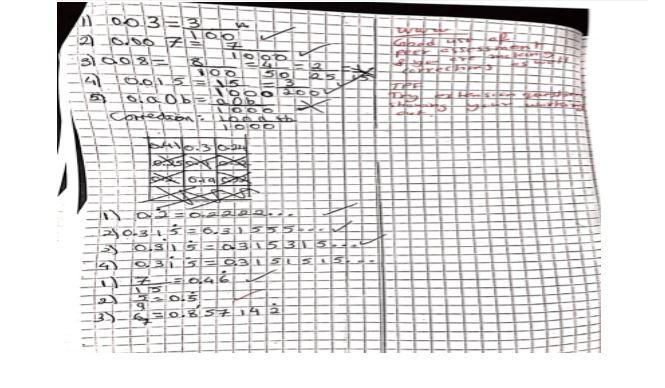 1) 0.03 = 3
100
2) 0.007 = 7
1000
3) 0.08 = 8 = 4 = 2
100 50 25
4) 0.015 = 15 = 3
1000 200
5) 0.a0b = a0b
1000
Correction:
1000
0.41 0.3 0.24
0.19
1) 0.2̇ = 0.2222...
2) 0.315̇ = 0.31555...
3) 0.3̇15̇ = 0.315315...
4) 0.31̇5̇ = 0.3151515...
1) 7 = 0.46̇
15
2) 5 = 0.5̇
9
3) 6 = 0.8̇57142̇
7
WWW
Good use of
peer assessment
& you are making
corrections as well
Try extension
showing your working
out.